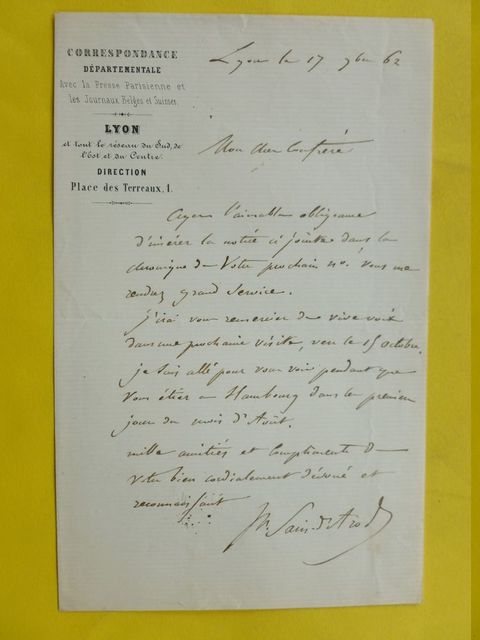 CORRESPONDANCE
DÉPARTEMENTALE
Avec la Presse Parisienne et
les Journaux Belges et Suisses.
LYON
et tout le réseau du Sud, de
l'Est et du Centre.
DIRECTION
Place des Terreaux, 1.
Lyon le 17 7bre 62
Mon cher Confrère
Ayez l'aimable obligeance
d'insérer la notice ci jointe dans la
chronique de Votre prochain n°. Vous me
rendrez grand Service.
J'irai vous remercier de vive voix
dans une prochaine visite, vers le 15 octobre.
je suis allé pour vous voir pendant que
Vous étiez à Hambourg dans les premiers
jours du mois d'Août.
mille amitiés et Compliments de
Votre bien cordialement dévoué et
reconnaissant
Sain d'Arod